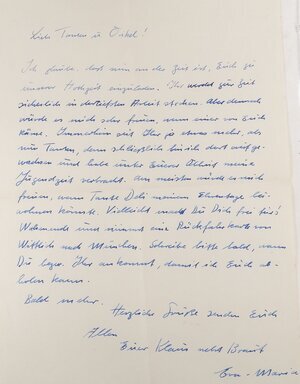 Liebe Tanten u. Onkel!
Ich glaube, dass nun an der Zeit ist, Euch zu
unserer Hochzeit einzuladen. Ihr werdet zur Zeit
sicherlich in der tiefsten Arbeit stecken. Aber dennoch
würde es mich sehr freuen, wenn einer von Euch
käme. Immerhin seid Ihr ja etwas mehr, als
nur Tanten, denn schließlich bin ich dort aufge-
wachsen und habe unter Eurer Obhut meine
Jugendzeit verbracht. Am meisten würde es mich
freuen, wenn Tante Deli meinem Ehrentage bei-
wohnen könnte. Vielleicht machst Du Dich frei fürs
Wochenende und nimmst eine Rückfahrkarte von
Wittlich nach München. Schreibe bitte bald, wann
Du bezw. Ihr ankommt, damit ich Euch ab-
holen kann.
Bald mehr.
Herzliche Grüße senden Euch
Allen
Euer Klaus nebst Braut
Eva-Maria